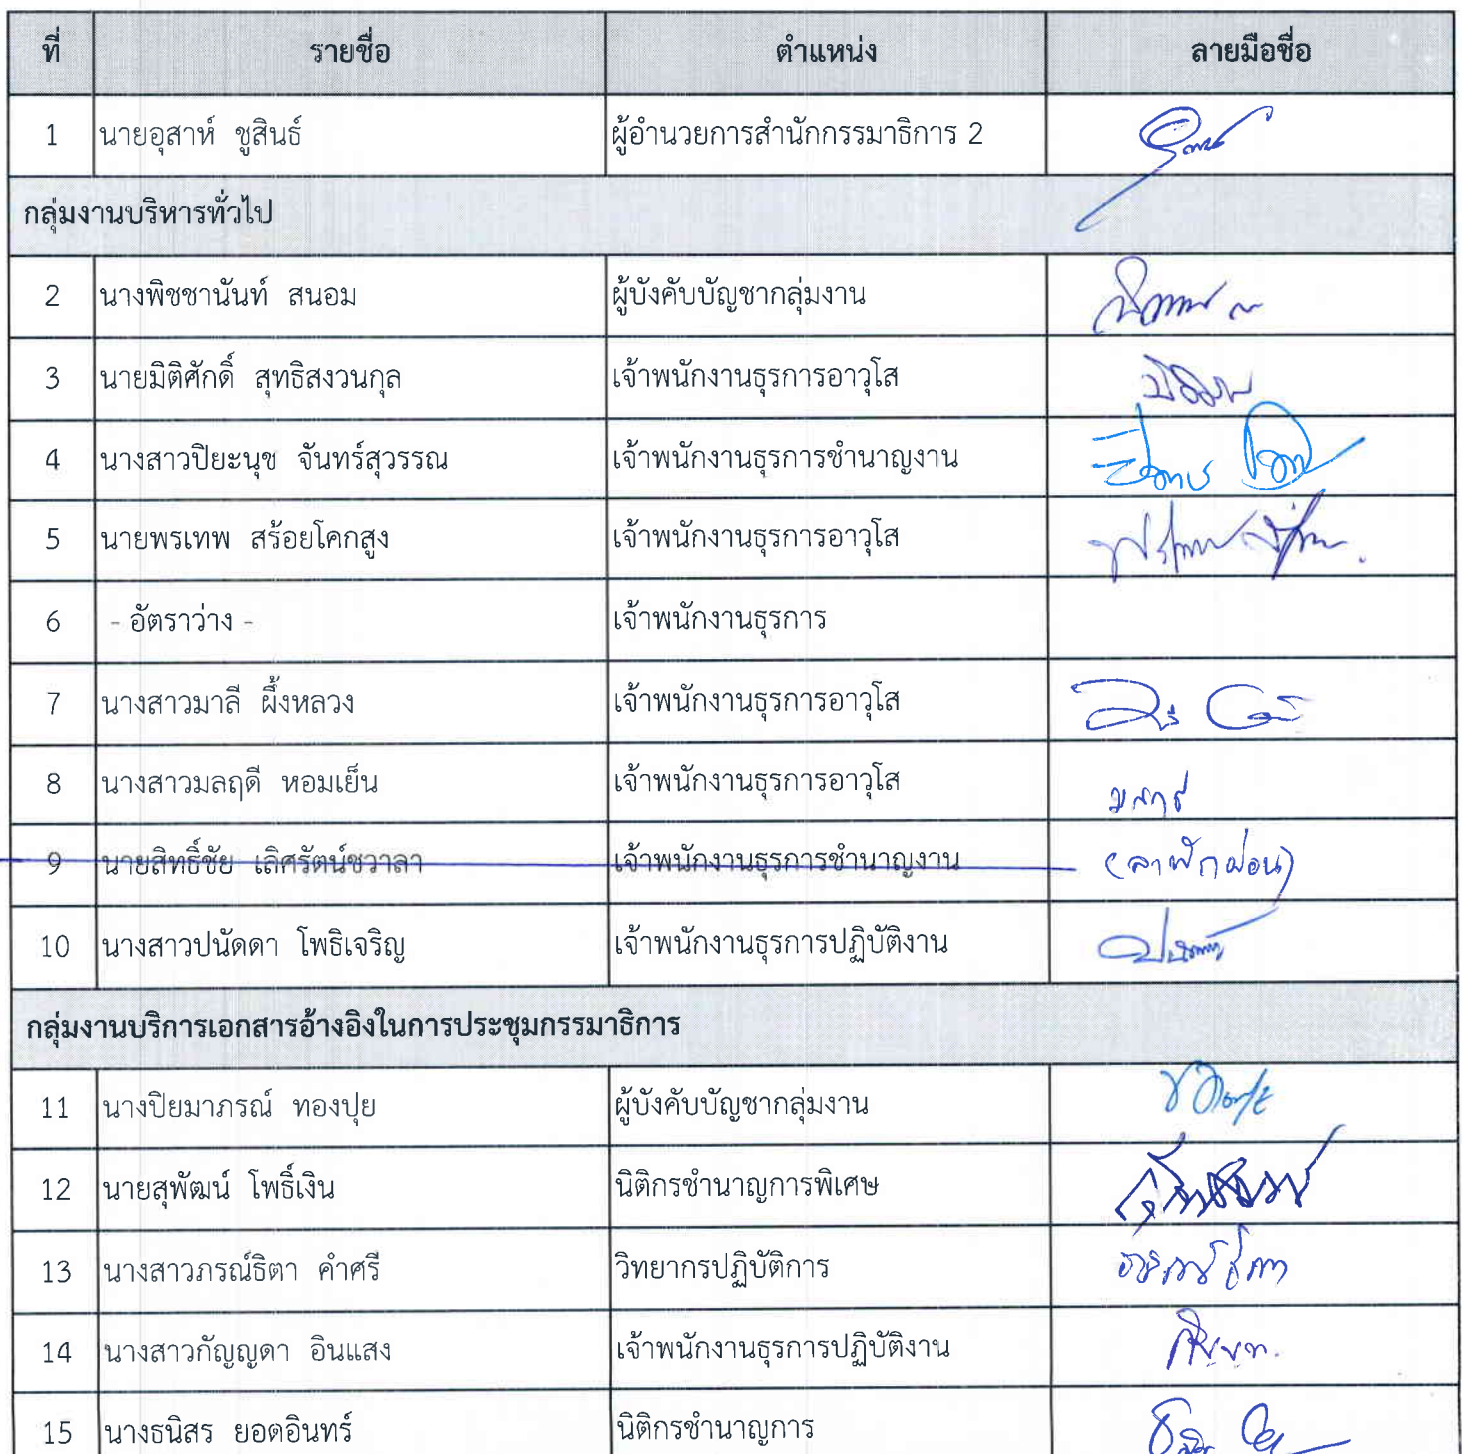 ที่ รายชื่อ ตำแหน่ง ลายมือชื่อ
1 นายอุสาห์ ชูสินธ์ ผู้อำนวยการสำนักกรรมาธิการ 2
กลุ่มงานบริหารทั่วไป
2 นางพิชชานันท์ สนอม ผู้บังคับบัญชากลุ่มงาน
3 นายมิติศักดิ์ สุทธิสงวนกุล เจ้าพนักงานธุรการอาวุโส
4 นางสาวปิยะนุช จันทร์สุวรรณ เจ้าพนักงานธุรการชำนาญงาน
5 นายพรเทพ สร้อยโคกสูง เจ้าพนักงานธุรการอาวุโส
6 - อัตราว่าง - เจ้าพนักงานธุรการ
7 นางสาวมาลี ผึ้งหลวง เจ้าพนักงานธุรการอาวุโส
8 นางสาวมลฤดี หอมเย็น เจ้าพนักงานธุรการอาวุโส มลฤดี
9 นายสิทธิ์ชัย เลิศรัตน์ชวาลา เจ้าพนักงานธุรการชำนาญงาน (ลาพักผ่อน)
10 นางสาวปนัดดา โพธิเจริญ เจ้าพนักงานธุรการปฏิบัติงาน
กลุ่มงานบริการเอกสารอ้างอิงในการประชุมกรรมาธิการ
11 นางปิยมาภรณ์ ทองปุย ผู้บังคับบัญชากลุ่มงาน
12 นายสุพัฒน์ โพธิ์เงิน นิติกรชำนาญการพิเศษ
13 นางสาวภรณ์ธิตา คำศรี วิทยากรปฏิบัติการ
14 นางสาวกัญญดา อินแสง เจ้าพนักงานธุรการปฏิบัติงาน
15 นางธนิสร ยอดอินทร์ นิติกรชำนาญการ